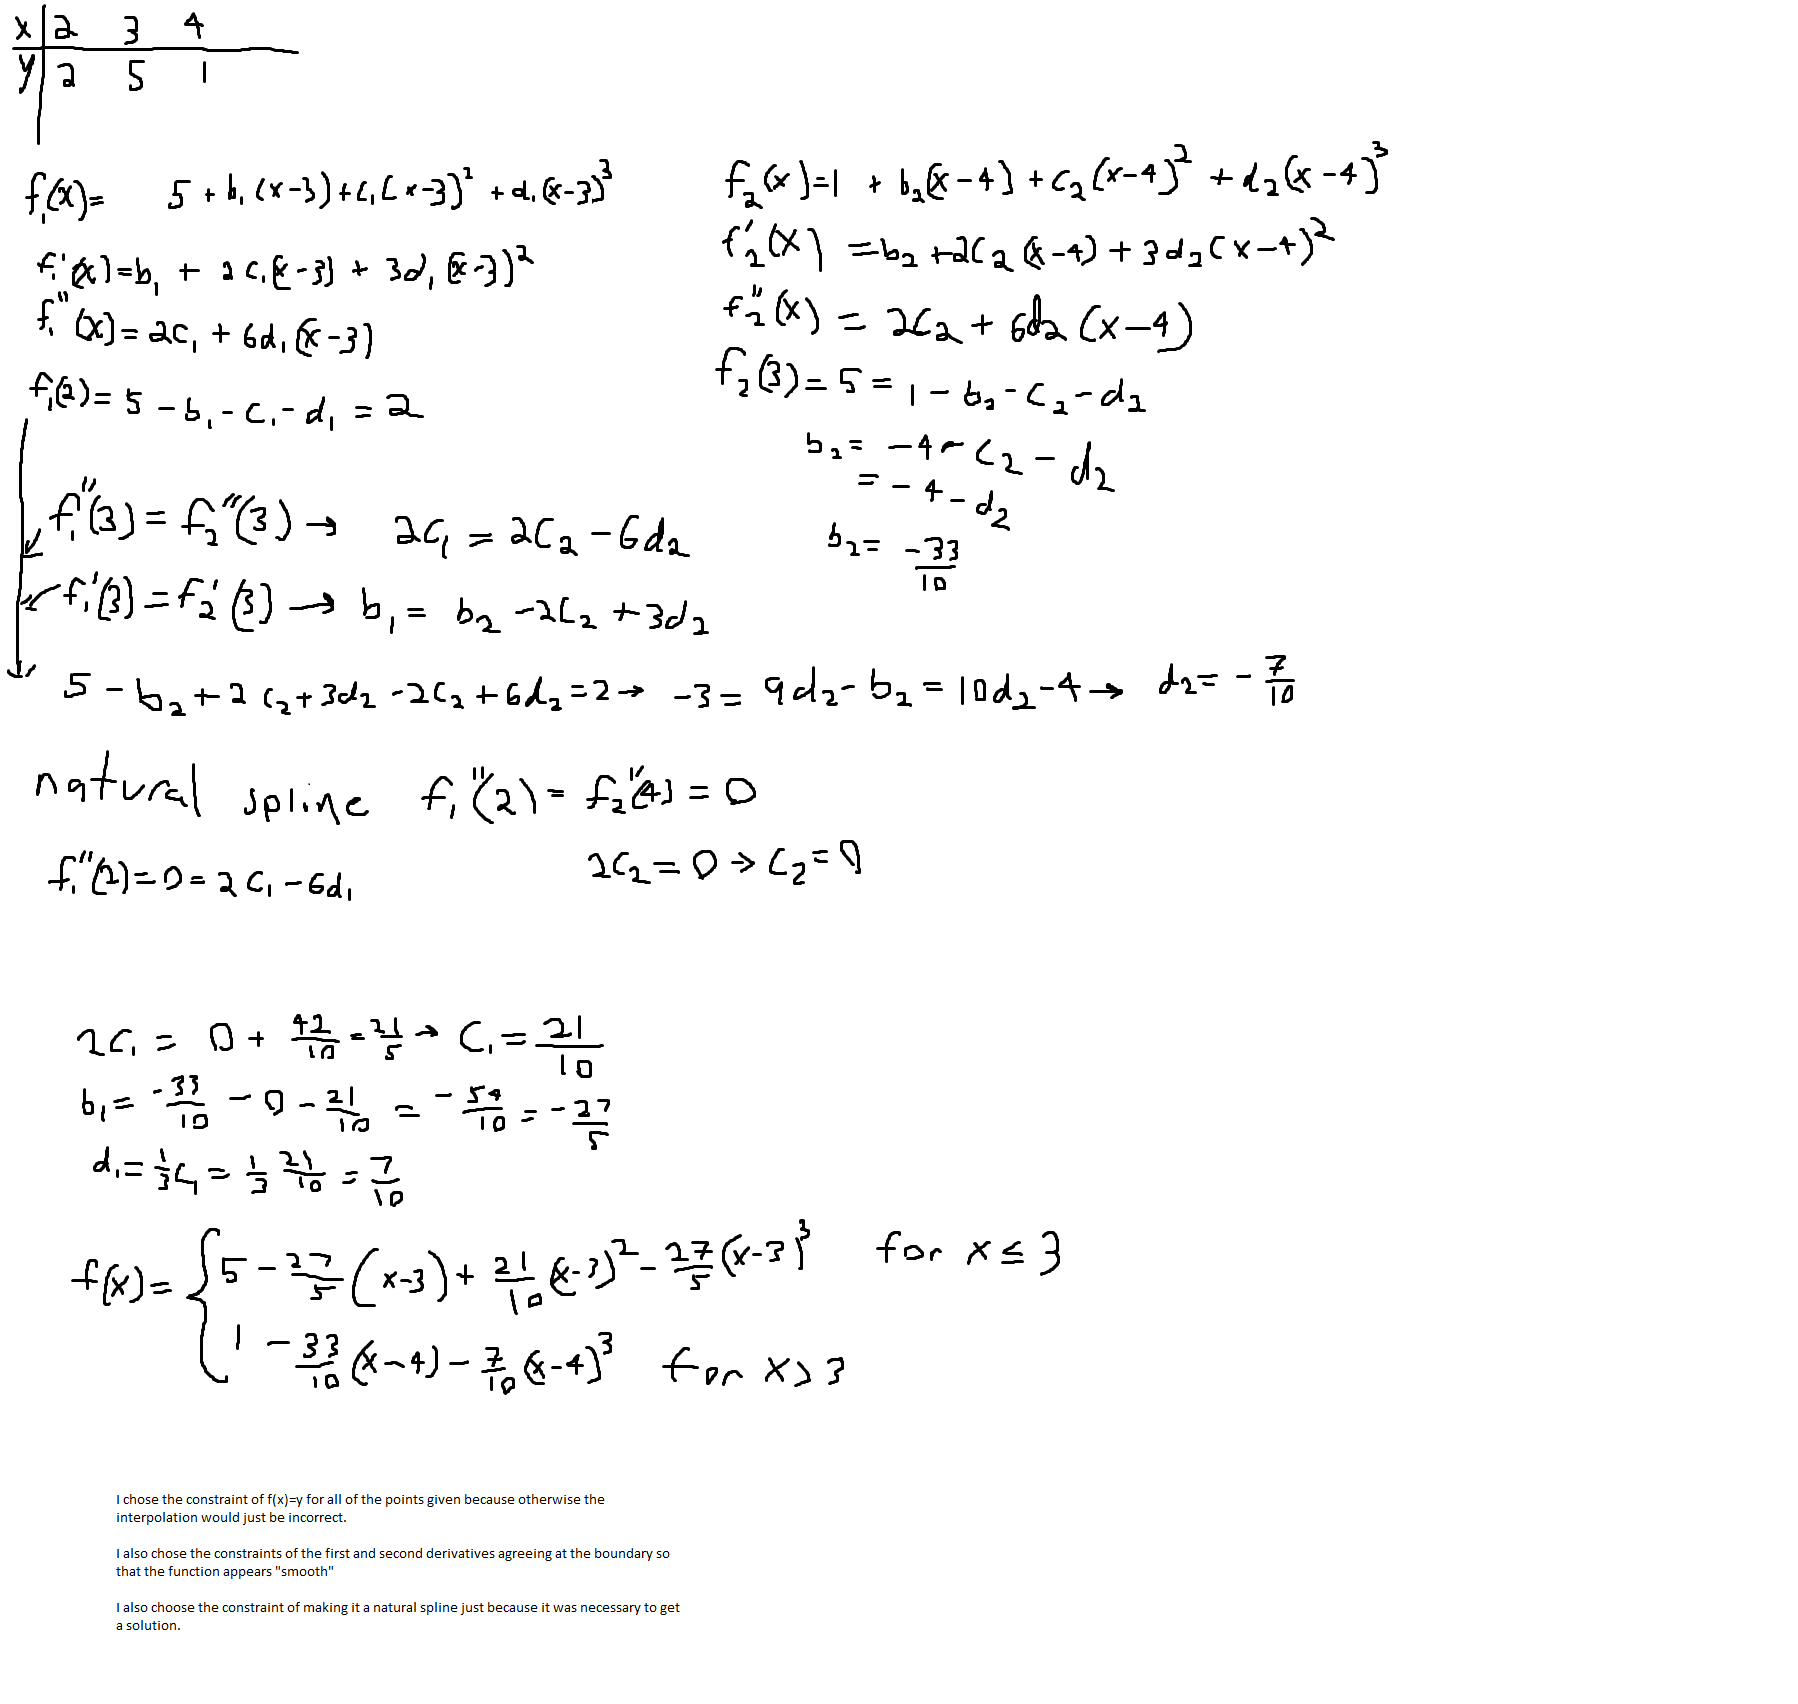 x | 2 3 4
y | 2 5 1
f₁(x)= 5 + b₁(x-3)+c₁(x-3)² + d₁(x-3)³
f₁'(x)=b₁ + 2c₁(x-3) + 3d₁(x-3)²
f₁''(x)=2c₁ + 6d₁(x-3)
f₁(2)= 5 - b₁ - c₁ - d₁ = 2
f₂(x)=1 + b₂(x-4) + c₂(x-4)² + d₂(x-4)³
f₂'(x) = b₂ + 2c₂(x-4) + 3d₂(x-4)²
f₂''(x) = 2c₂ + 6d₂(x-4)
f₂(3) = 5 = 1 - b₂ - c₂ - d₂
b₂ = -4 - c₂ - d₂
= -4 - d₂
b₂ = -33/10
f₁''(3) = f₂''(3) → 2c₁ = 2c₂ - 6d₂
f₁'(3) = f₂'(3) → b₁ = b₂ - 2c₂ + 3d₂
5 - b₂ + 2c₂ + 3d₂ - 2c₂ + 6d₂ = 2 → -3 = 9d₂ - b₂ = 10d₂ - 4 → d₂ = -7/10
natural spline f₁''(2) = f₂''(4) = 0
f₁''(2) = 0 = 2c₁ - 6d₁
2c₂ = 0 → c₂ = 0
2c₁ = 0 + 42/10 = 21/5 → c₁ = 21/10
b₁ = -33/10 - 0 - 21/10 = -54/10 = -27/5
d₁ = 1/3 c₁ = 1/3 21/10 = 7/10
f(x) = { 5 - 27/5 (x-3) + 21/10 (x-3)² - 27/5 (x-3)³ for x ≤ 3
1 - 33/10 (x-4) - 7/10 (x-4)³ for x > 3
I chose the constraint of f(x)=y for all of the points given because otherwise the
interpolation would just be incorrect.
I also chose the constraints of the first and second derivatives agreeing at the boundary so
that the function appears "smooth"
I also choose the constraint of making it a natural spline just because it was necessary to get
a solution.